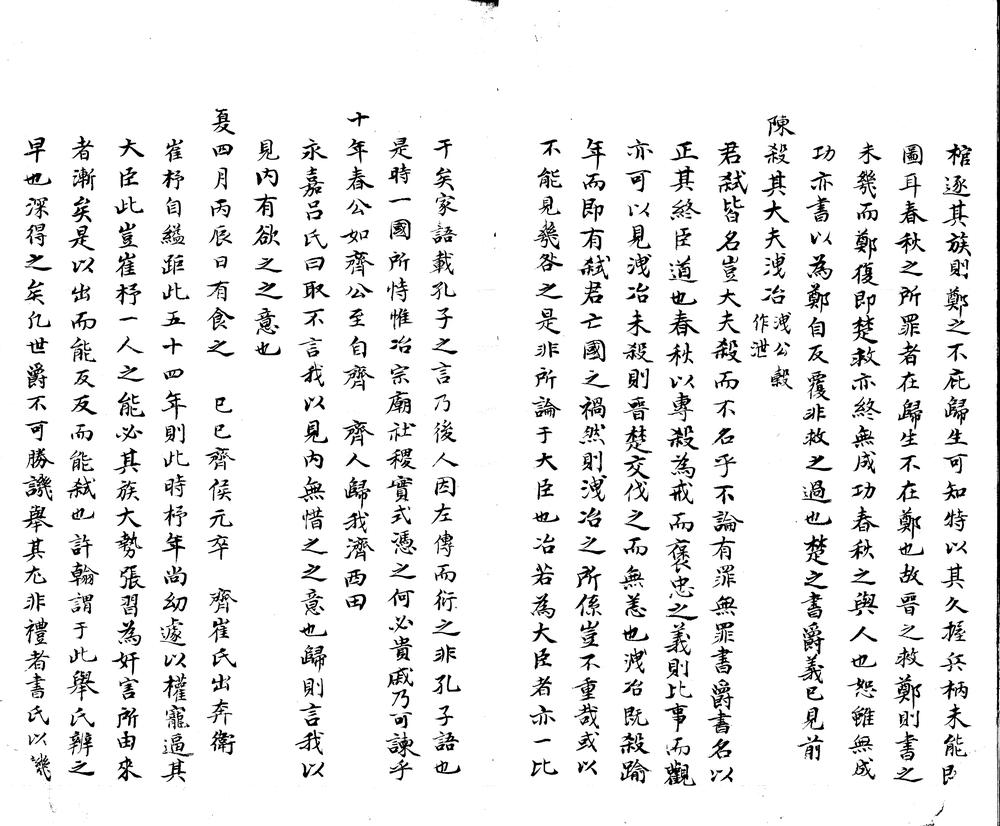 棺逐其族則鄭之不庇歸生可知特以其久握兵柄未能即
圖耳春秋之所罪者在歸生不在鄭也故晉之救鄭則書之
未幾而鄭復即楚救亦終無成功春秋之與人也恕雖無成
功亦書以為鄭自反覆非救之過也楚之書爵義已見前
陳殺其大夫洩冶洩公穀作泄
君弒皆名豈大夫殺而不名乎不論有罪無罪書爵書名以
正其終臣道也春秋以專殺為戒而褒忠之義則比事而觀
亦可以見洩冶未殺則晉楚交伐之而無恙也洩冶既殺踰
年而即有弒君亡國之禍然則洩冶之所係豈不重哉或以
不能見幾咎之是非所論于大臣也冶若為大臣者亦一比
干矣家語載孔子之言乃後人因左傳而衍之非孔子語也
是時一國所恃惟冶宗廟社稷實式憑之何必貴戚乃可諫乎
十年春公如齊公至自齊　齊人歸我濟西田
永嘉呂氏曰取不言我以見內無惜之之意也歸則言我以
見內有欲之之意也
夏四月丙辰日有食之　己巳齊侯元卒　齊崔氏出奔衛
崔杼自縊距此五十四年則此時杼年尚幼遽以權寵逼其
大臣此豈崔杼一人之能必其族大勢張習為奸言所由來
者漸矣是以出而能反反而能弒也許翰謂于此舉氏辨之
早也深得之矣凡世爵不可勝譏舉其尤非禮者書氏以譏